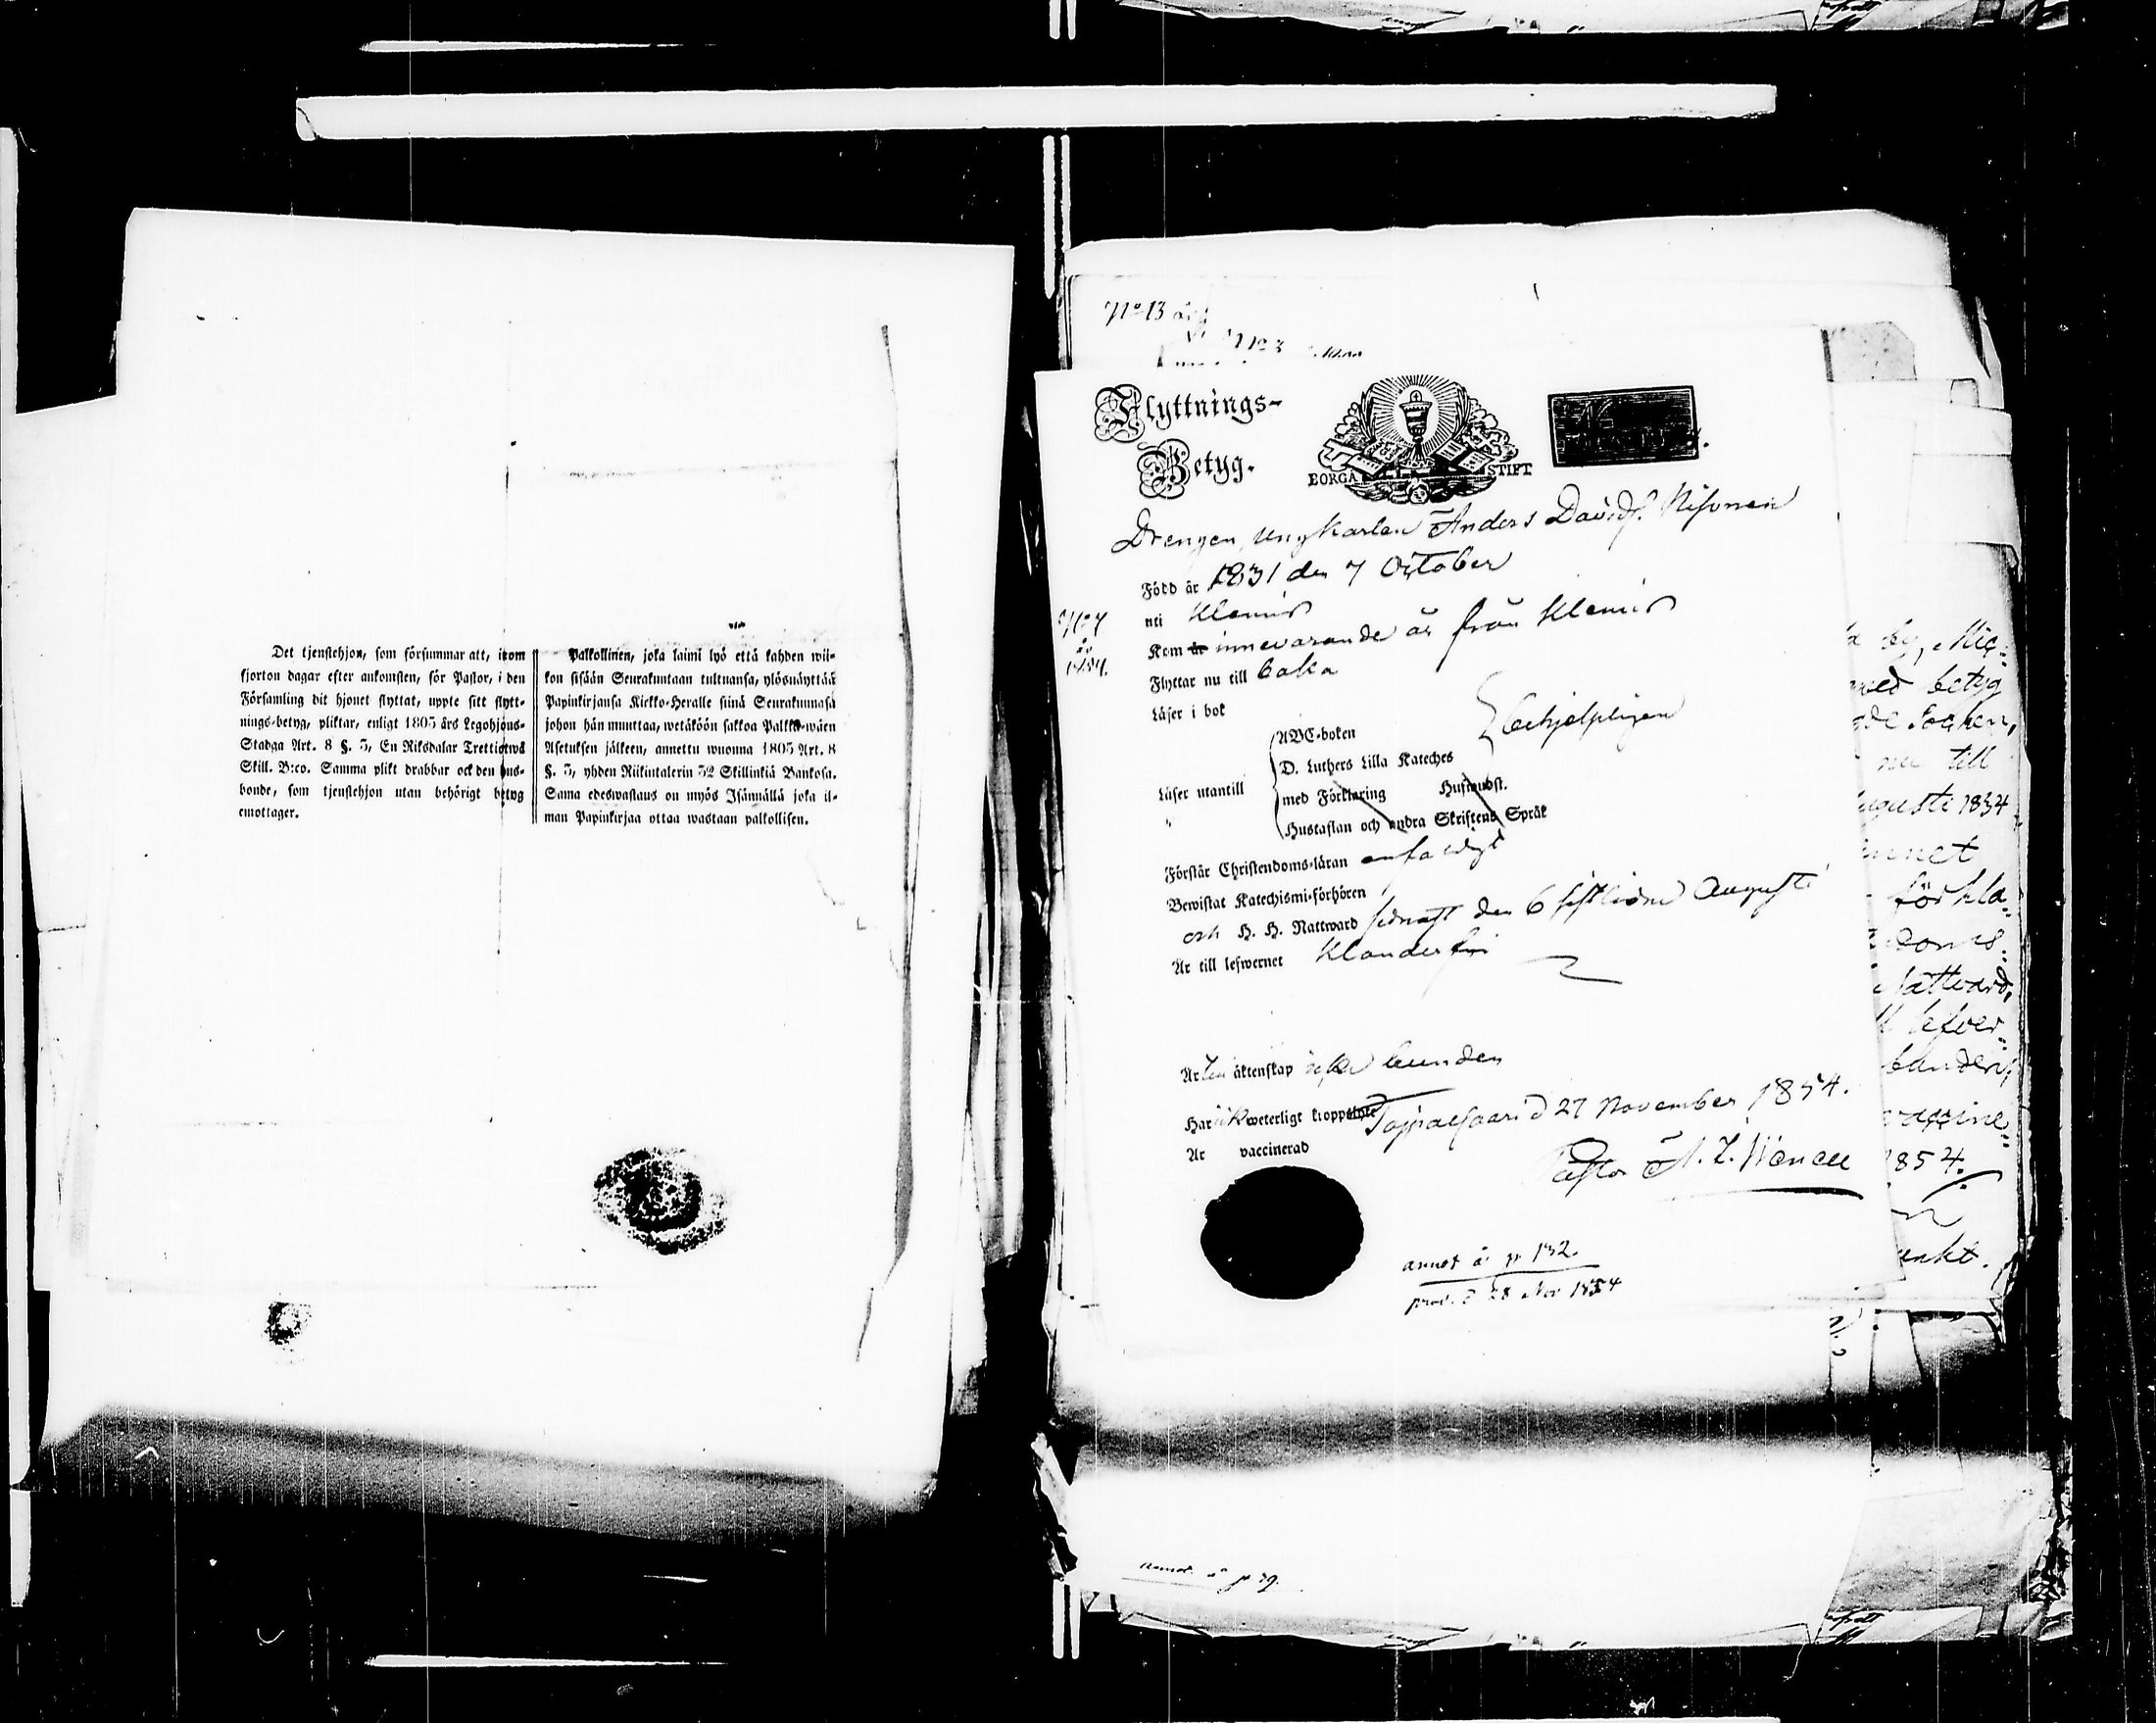 Det tjenstehjon, som försummar att, inom
fjorton dagar efter ankomsten, för Pastor, i den
Församling dit hjonet flyttat, uppte sitt flytt-
nings-betyg, pliktar, enligt 1805 års Legohjons-
Stadga Art. 8 §. 5, En Riksdalar Trettiotwå
Skill. B:co. Samma plikt drabbar ock den hus-
bonde, som tjenstehjon utan behörigt betyg
emottager.
Palkollinen, joka laimi lyö että kahden wii-
kon sisään Seurakuntaan tultuansa, ylösnäyttää
Papinkirjansa Kirkko-Herralle siinä Seurakunnasa
johon hän muuttaa, wetäköön sakkoa Palkka-wäen
Asetuksen jälkeen, annettu wuonna 1805 Art. 8
§. 5, yhden Riikintalerin 32 Skillinkiä Bankosa.
Sama edeswastaus on myös Isännällä joka il-
man Papinkirjaa ottaa wastaan palkollisen.
No 13
No 3
Flyttnings-
Betyg.
BORGÅ STIFT
Drengen, ungkarlen Anders Davids.
Född år 1831 den 7 October
uti Klemis
No 4
år
1854.
Kom år innevarande år från Klemis
Flyttar nu till baka
Läser i bok
behjelpligen
ABC-boken
D. Luthers Lilla Kateches
Läser utantill
med Förklaring Husandst.
Hustaflan och andra Skriftens Språk
Förstår Christendoms-läran enfaldigt
Bewistat Katechismi-förhören
och H. H. Nattward senast den 6 sistlidne Augusti
Är till lefwernet klanderfri
Är till äktenskap icke bunden
Har wetterligt kroppslyte
Är vaccinerad
27 November 1854.
Pastor
annot å p 132.
prod. d 28 Nov 1854
by, Mic-
med betyg
Socken,
nu till
Augusti 1854
förkla-
Nattvard,
lefver-
vaccine-
1854.
annot. å p 39.